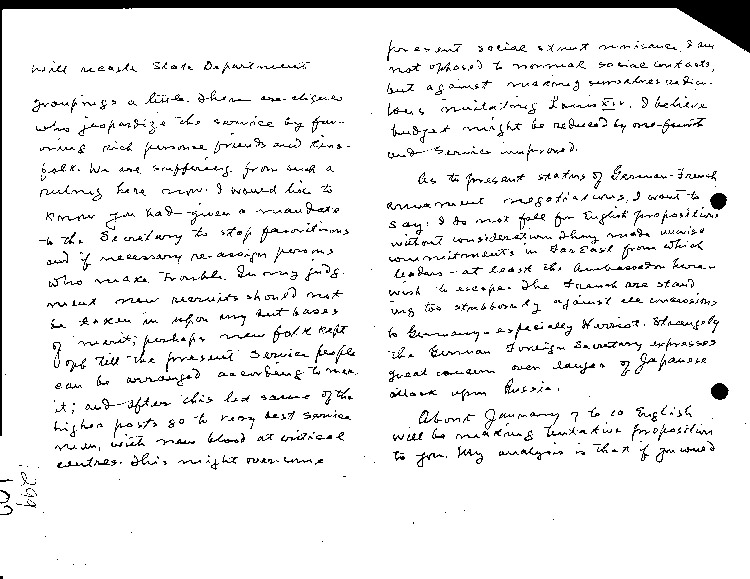 will recast State Department
groupings a little. There are cliques
who jeopardize the service by fav-
oring rich personal friends and kins-
folk. We are suffering from such a
ruling here now. I would like to
know you had given a mandate
to the Secretary to stop favoritisms
and if necessary re-assign persons
who make trouble. In my judg-
ment new recruits should not
be taken in upon any but bases
of merit; perhaps new folk kept
off till the present Service people
can be arranged according to mer-
it; and after this let some of the
higher posts go to very best service
men, with new blood at critical
centres. This might overcome
present social strut nuisance. I am
not opposed to normal social contacts,
but against making ourselves ridicu-
lous imitating Louis XIV. I believe
budget might be reduced by one-fourth
and Service improved.
As to present status of German-French
armament negotiations, I want to
say: I do not fall for English proposition
without consideration. They made unwise
commitments in Far East from which
leaders - at least the Ambassador here -
wish to escape. The French are stand-
ing too stubbornly against all concessions
to Germany - especially Herriot. Strangely
the German Foreign Secretary expresses
great concern over danger of Japanese
attack upon Russia.
About January 7 to 10 English
will be making tentative proposition
to you. My analysis is that if you would